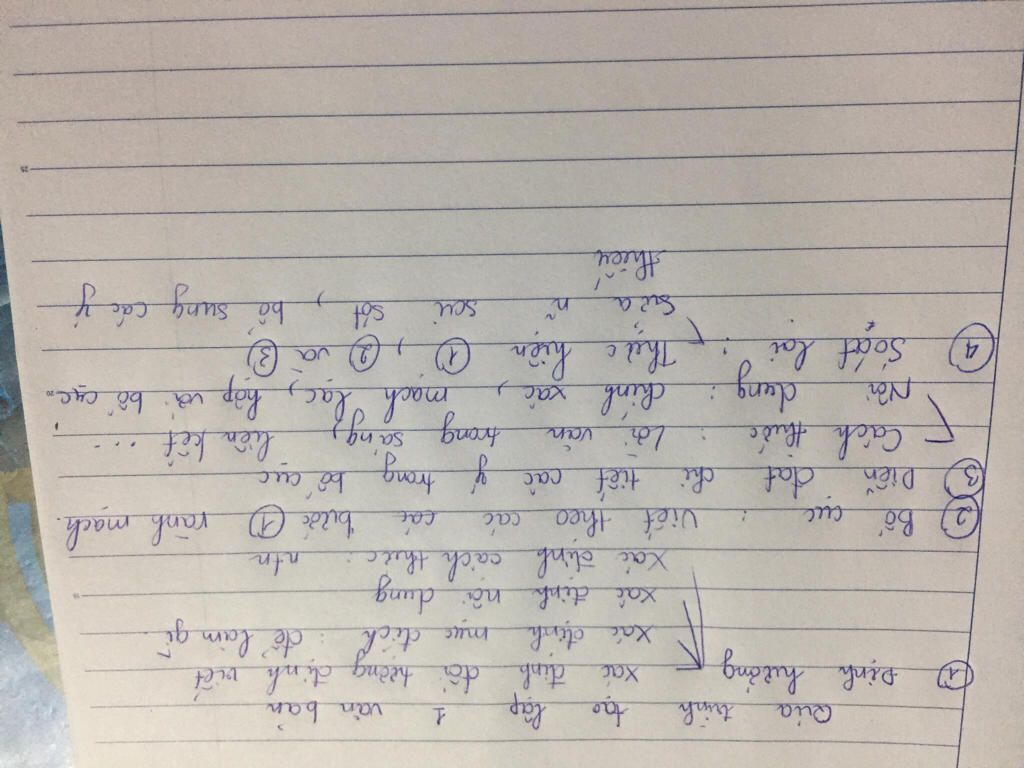 Qúa trình tạo lập 1 văn bản
① Định hướng xác định đối tượng định viết
xác định mục đích : để làm gì
xác định nôi dung
xác định cách thức : ntn
② Bố cục : viết theo các các bước ① rành mạch.
③ Diễn đạt chi tiết các ý trong bố cục
Cách thức : Lời văn trong sáng, liên kết ...
Nôi dung : chính xác, mạch lạc, hợp với bố cục
④ Soát lại : Thực hiện ①, ② và ③
sửa sai sót, bổ sung các ý
thiếu
20
25